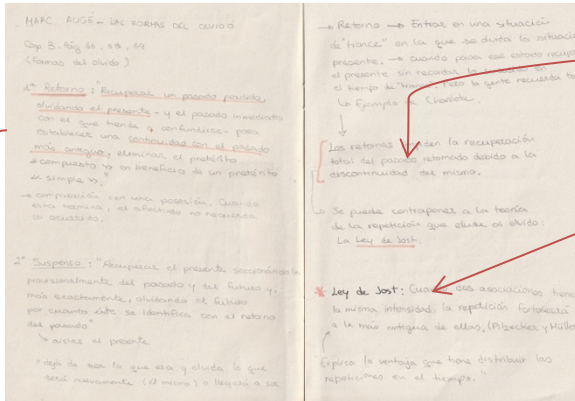 MARC AUGÉ - LAS FORMAS DEL OLVIDO
Cap 3. Pág 66, 67
(Formas del olvido)
1º Retorno: "Recuperar un pasado perdido,
olvidando el presente - y el pasado inmediato
con el que tiende a confundirse - para
establecer una continuidad con el pasado
más antiguo, eliminar el pretérito
« compuesto » en beneficio de un pretérito
« simple »."
→ comparación con una posesión. Cuando
esta termina, el afectado no recuerda
lo ocurrido.
2º Suspenso: "Recuperar el presente seccionándolo
provisionalmente del pasado y del futuro y,
más exactamente, olvidando el futuro
por cuanto éste se identifica con el retorno
del pasado"
aislar el presente
"dejo de ser lo que era y olvida lo que
será nuevamente (él mismo) o llegará a ser
→ Retorno → Entras en una situación
de "trance" en la que se olvida la situación
presente. → cuando pasa ese estado recupera
el presente sin recordar
el tiempo de "trance". Pero la gente recuerda
Ejemplo de
Los retornos impiden la recuperación
total del pasado retomado debido a la
discontinuidad del mismo.
Se puede contraponer a la teoría
de la repetición que elude al olvido:
La Ley de Jost.
* Ley de Jost: Cuando dos asociaciones tienen
la misma intensidad, la repetición fortalecerá
a la más antigua de ellas. (Alzecker y Müller
Explica la ventaja que tiene distribuir las
repeticiones en el tiempo."